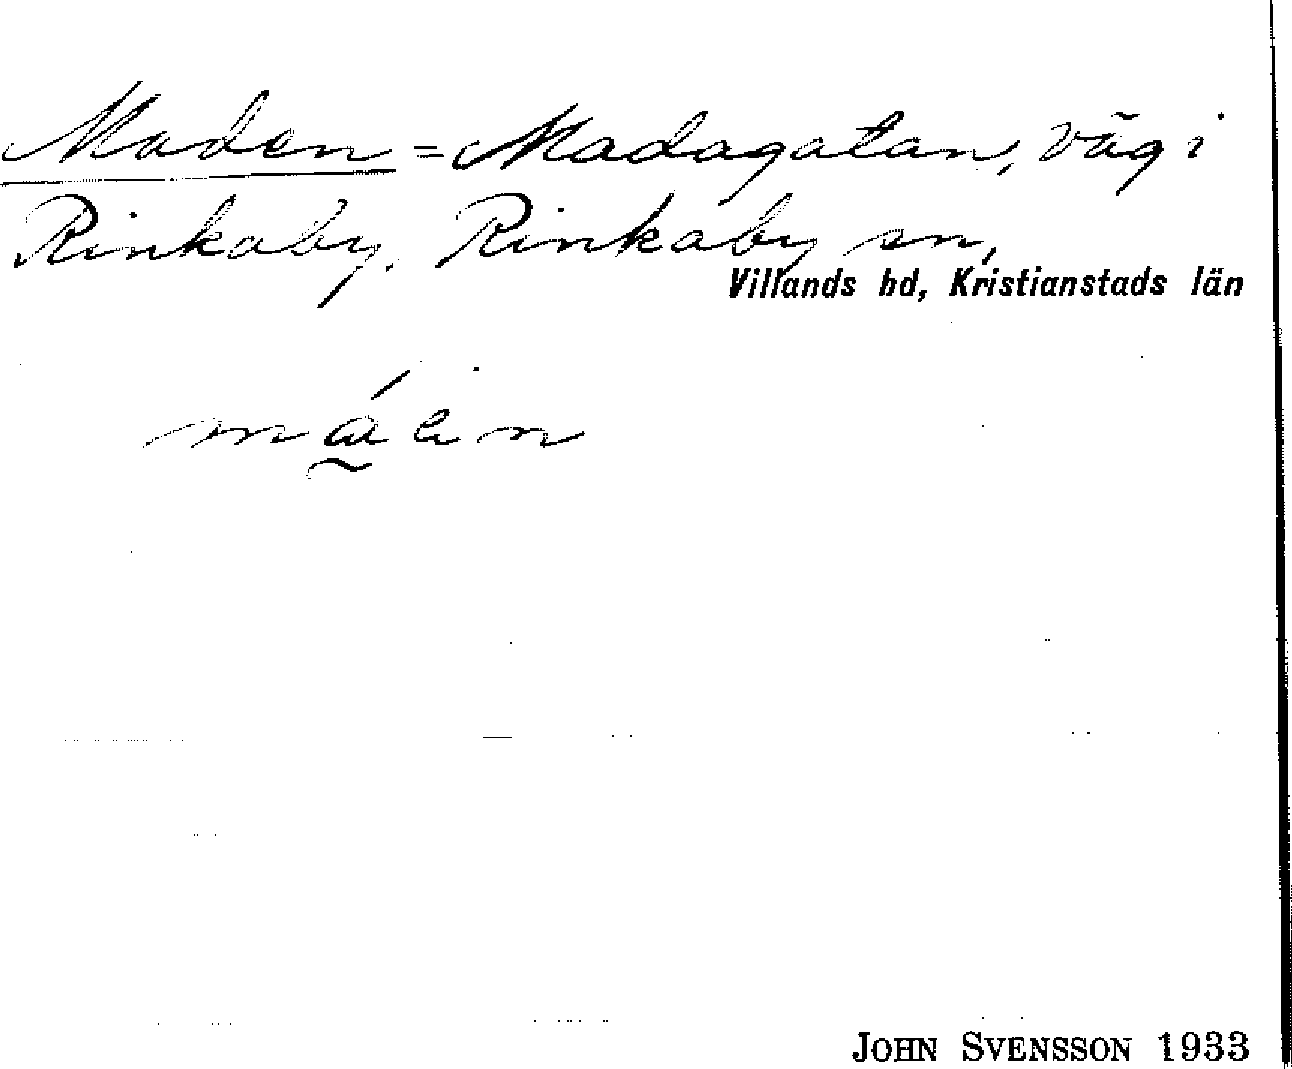 Maden = Madagatan, väg i
Rinkaby. Rinkaby sn,
Villands hd, Kristianstads län
JOHN SVENSSON 1933